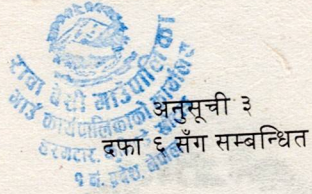 रावा वेसी गाउँपालिका
गाउँ कार्यपालिकाको कार्यालय
१ नं. प्रदेश, नेपाल
अनुसूची ३
दफा ६ सँग सम्बन्धित